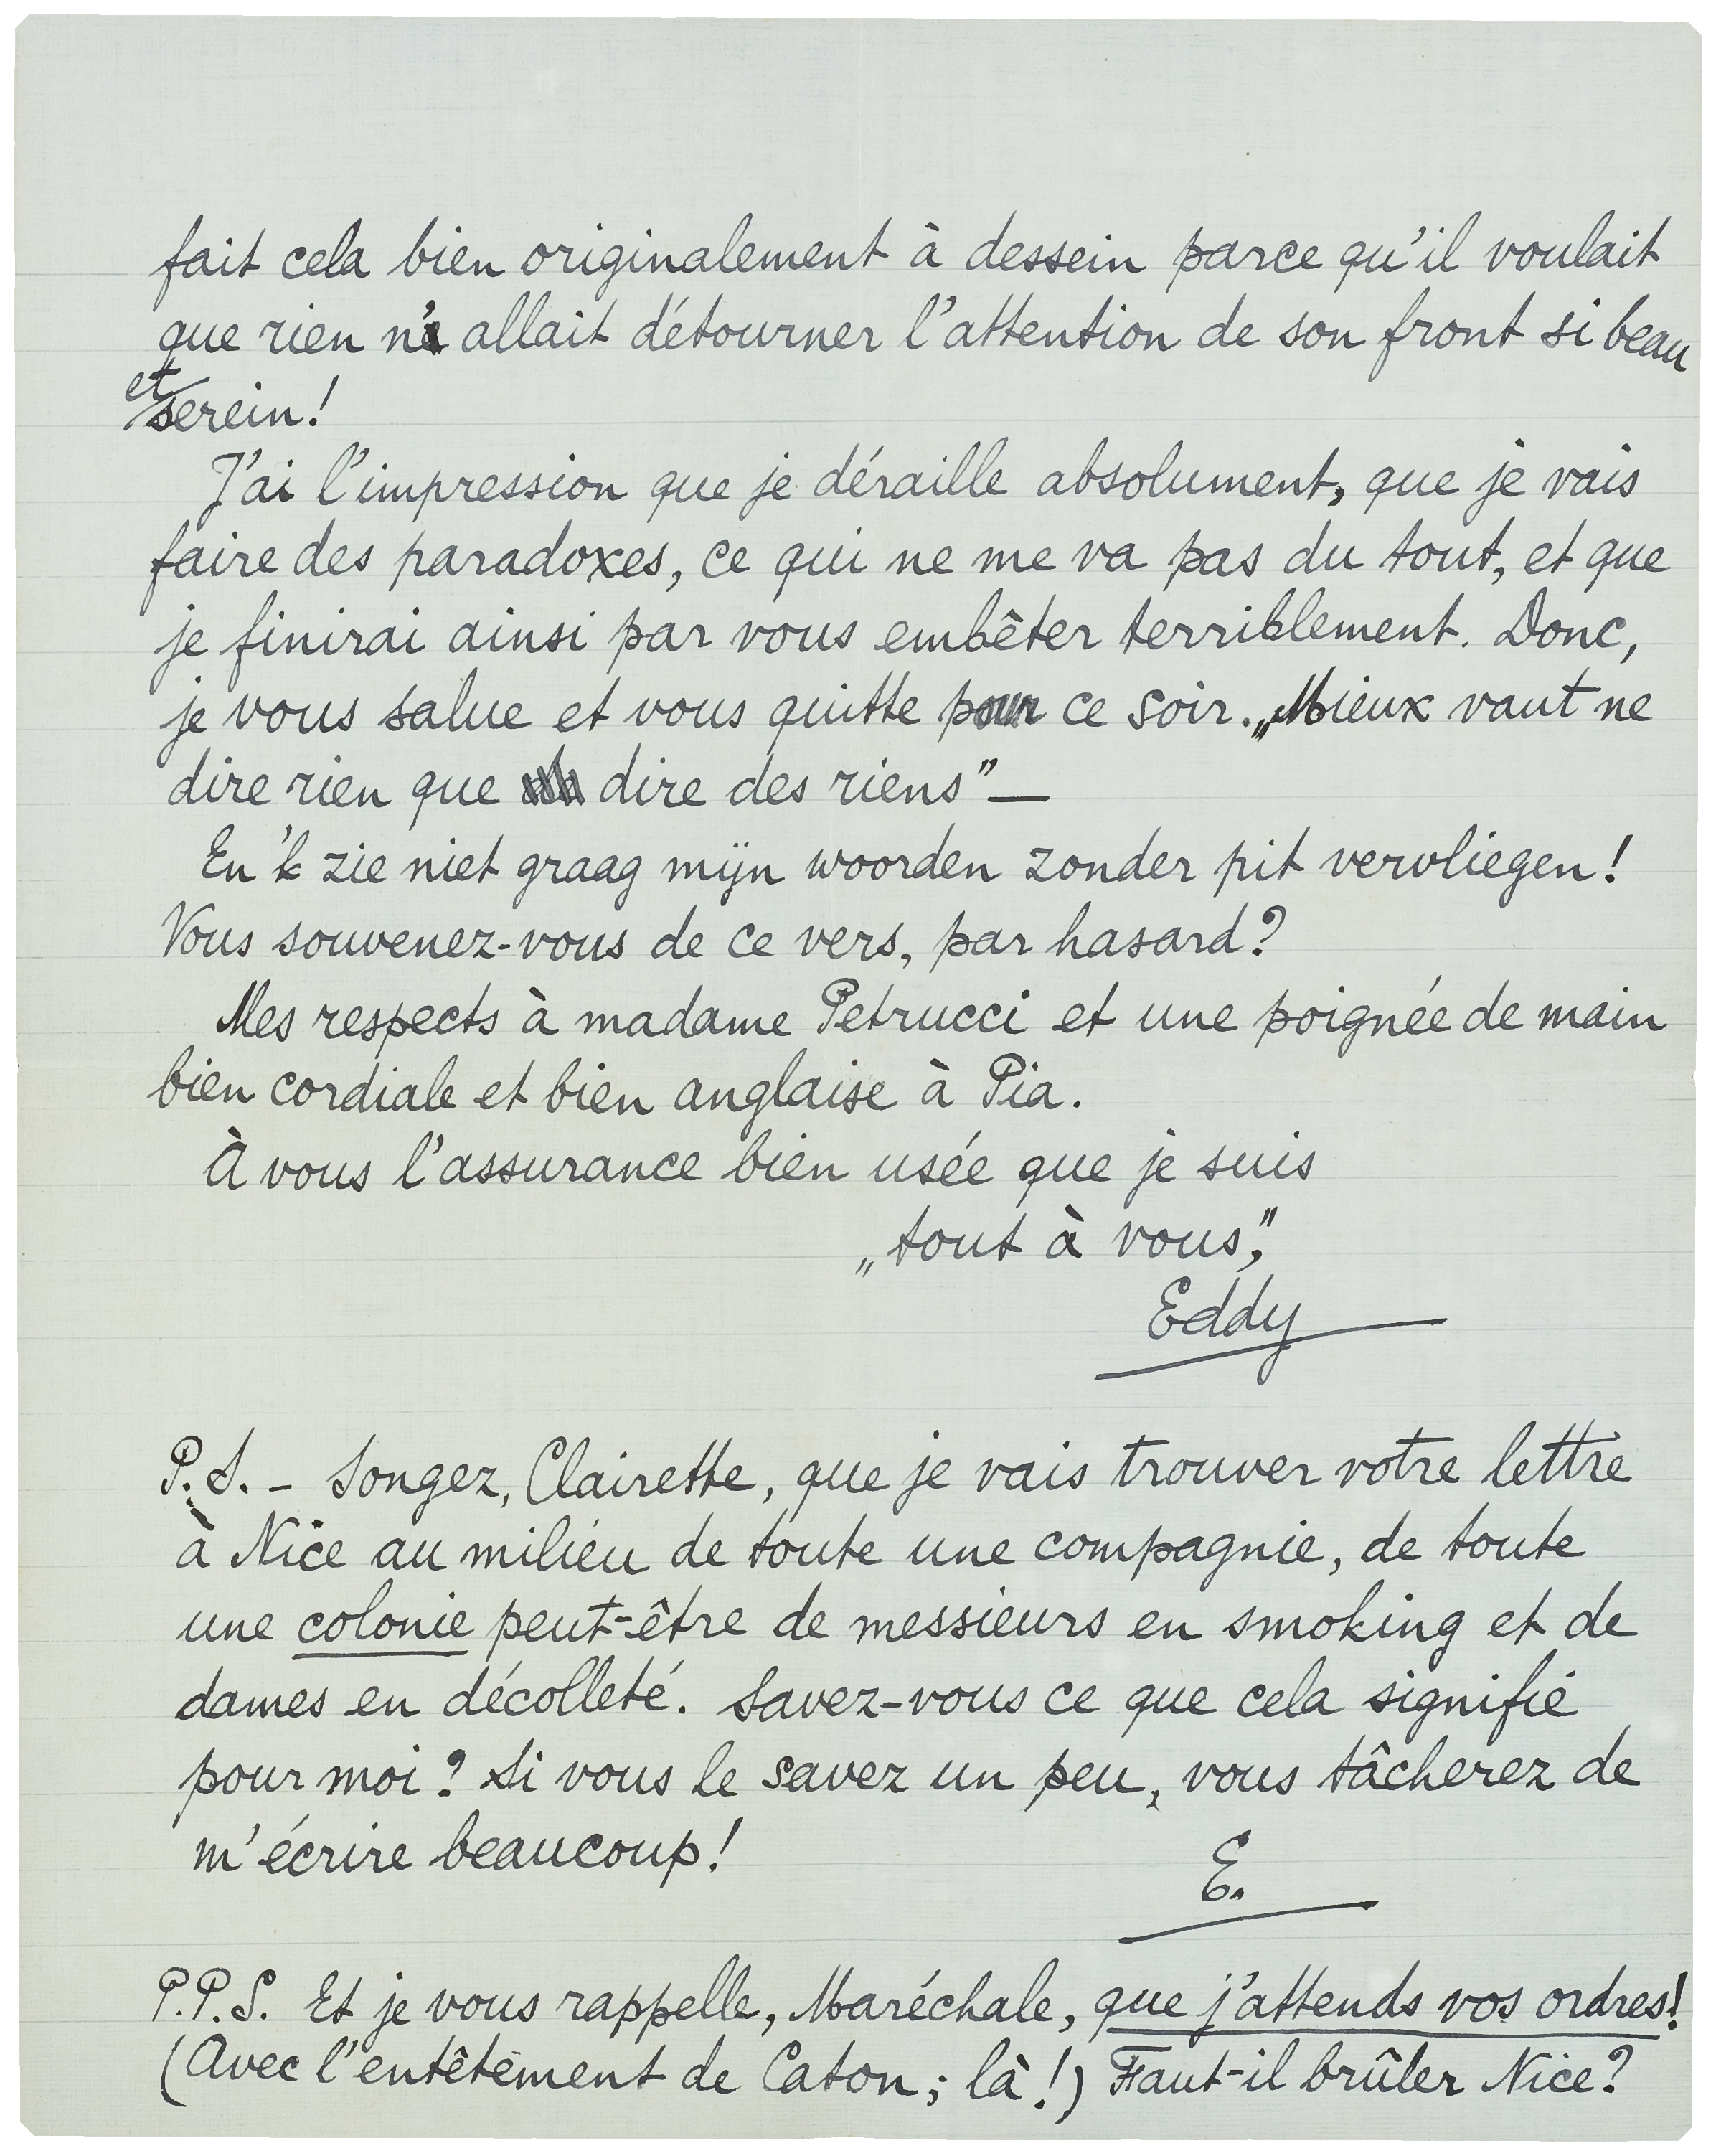 fait cela bien originalement à dessein parce qu'il voulait
que rien n'allait détourner l'attention de son front si beau
et serein!
J'ai l'impression que je déraille absolument, que je vais
faire des paradoxes, ce qui ne me va pas du tout, et que
je finirai ainsi par vous embêter terriblement. Donc,
je vous salue et vous quitte pour ce soir. „Mieux vaut ne
dire rien que dire des riens” —
En 'k zie niet graag mijn woorden zonder pit vervliegen!
Vous souvenez-vous de ce vers, par hasard?
Mes respects à madame Petrucci et une poignée de main
bien cordiale et bien anglaise à Pia.
À vous l'assurance bien usée que je suis
„tout à vous,”
Eddy
P.S. - Songez, Clairette, que je vais trouver votre lettre
à Nice au milieu de toute une compagnie, de toute
une colonie peut-être de messieurs en smoking et de
dames en décolleté. Savez-vous ce que cela signifie
pour moi? Si vous le savez un peu, vous tâcherez de
m'écrire beaucoup!
E.
P.P.S. Et je vous rappelle, Maréchale, que j'attends vos ordres!
(Avec l'entêtement de Caton; là!) Faut-il brûler Nice?